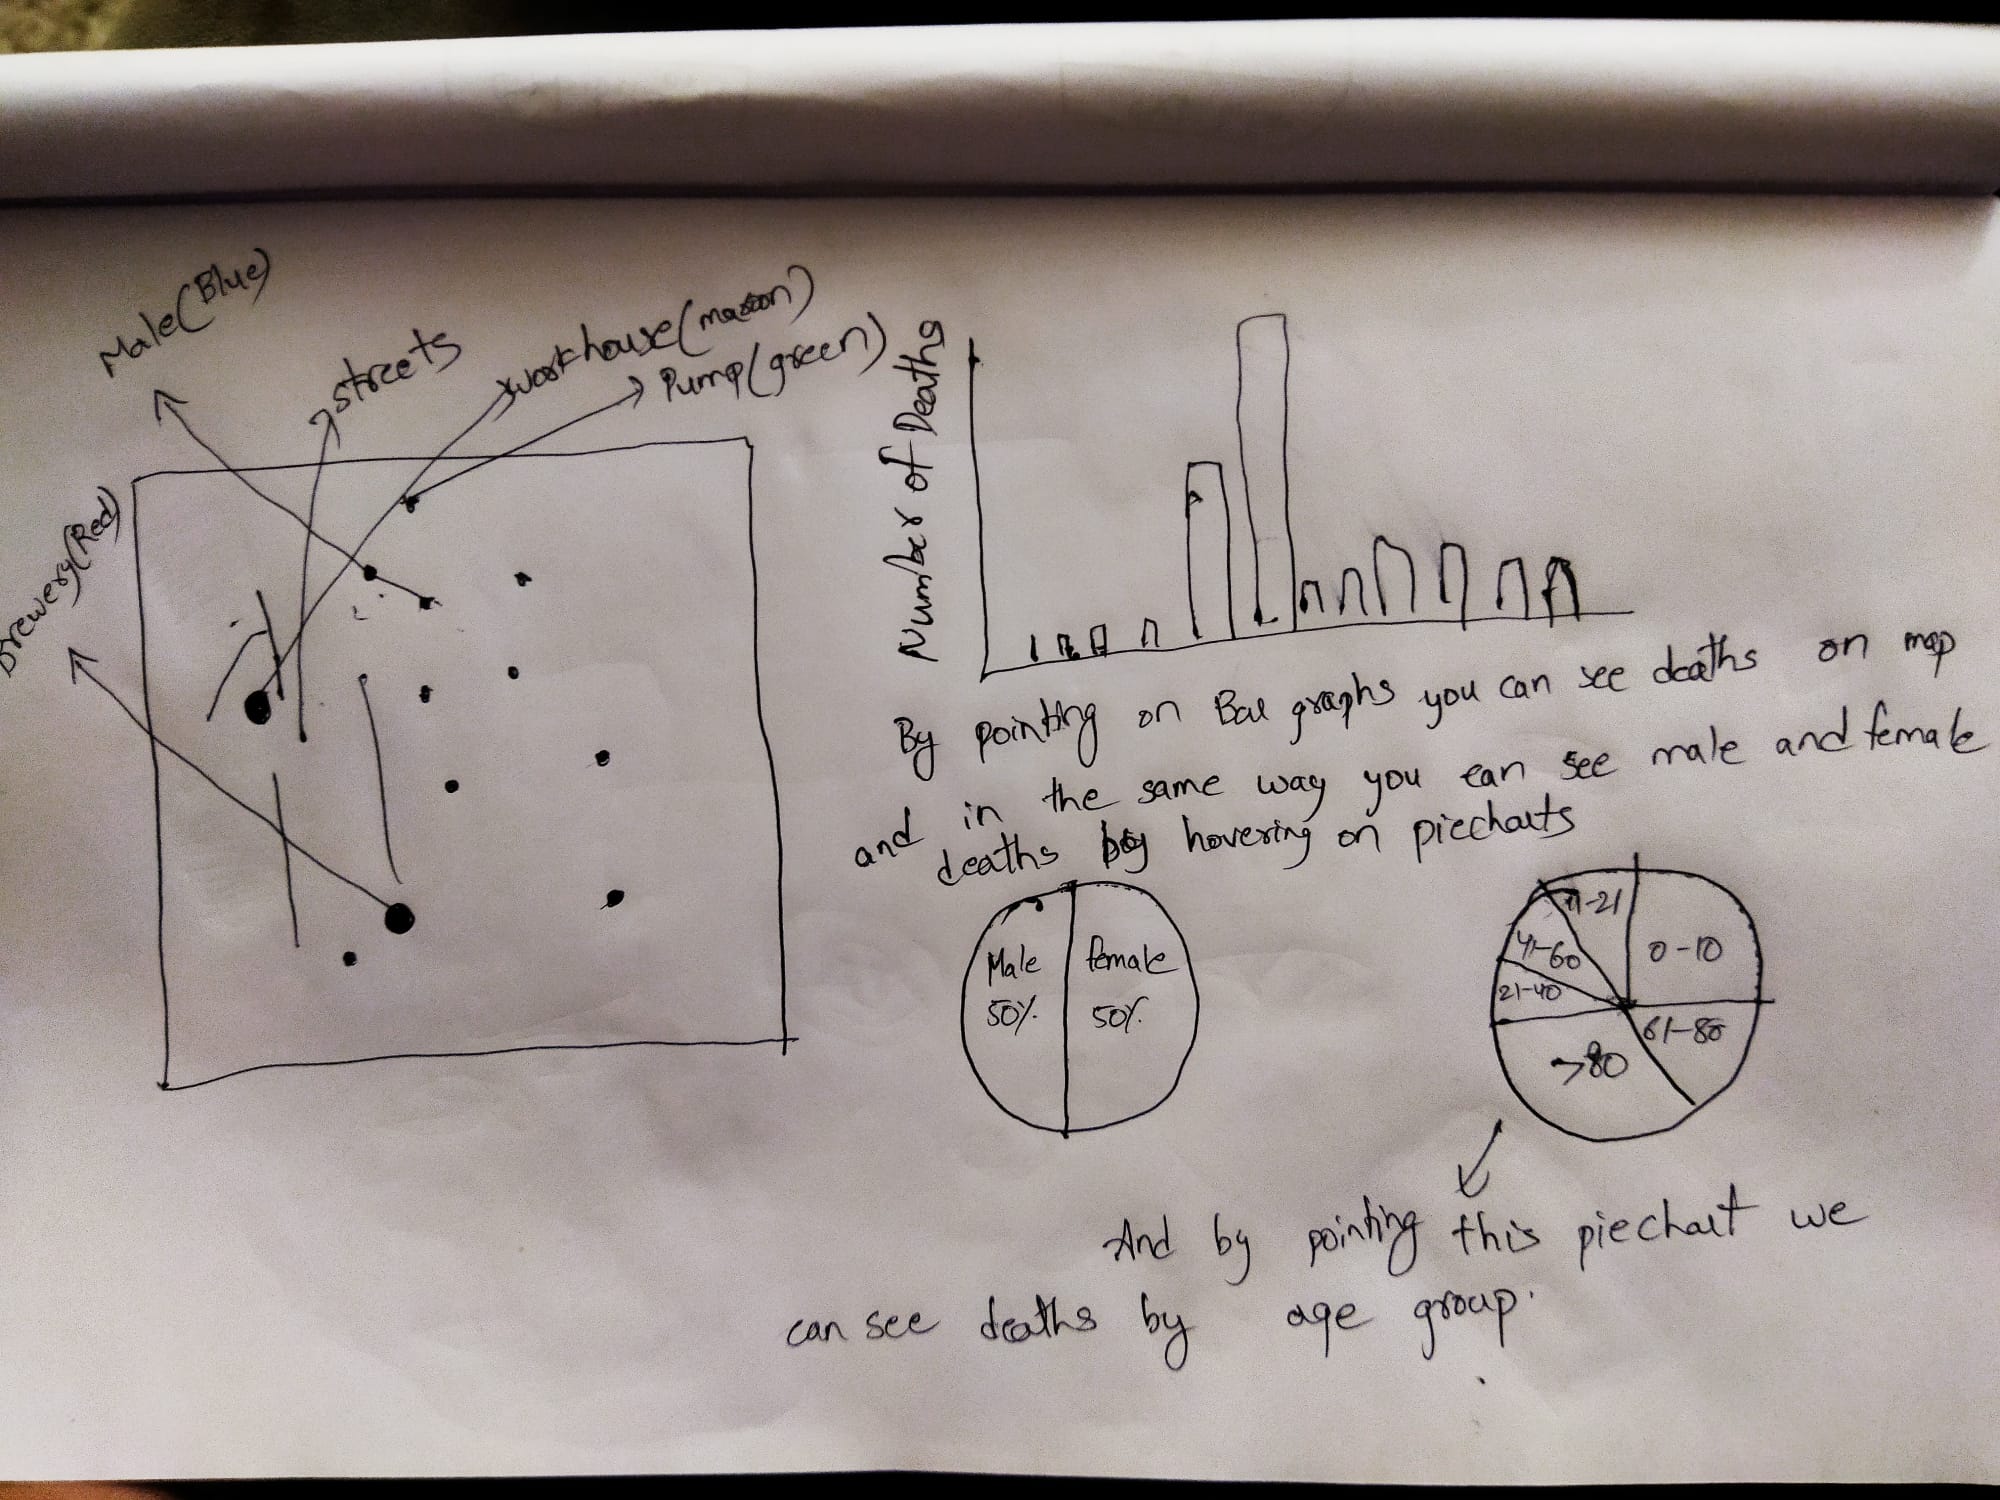 Male(Blue)
streets
workhouse(maroon)
Pump(green)
Brewery(Red)
Number of Deaths
By pointing on Bar graphs you can see deaths on map
and in the same way you can see male and female
deaths by hovering on piecharts
Male
50%
female
50%
11-21
0-10
41-60
21-40
61-80
>80
And by pointing this piechart we
can see deaths by age group.